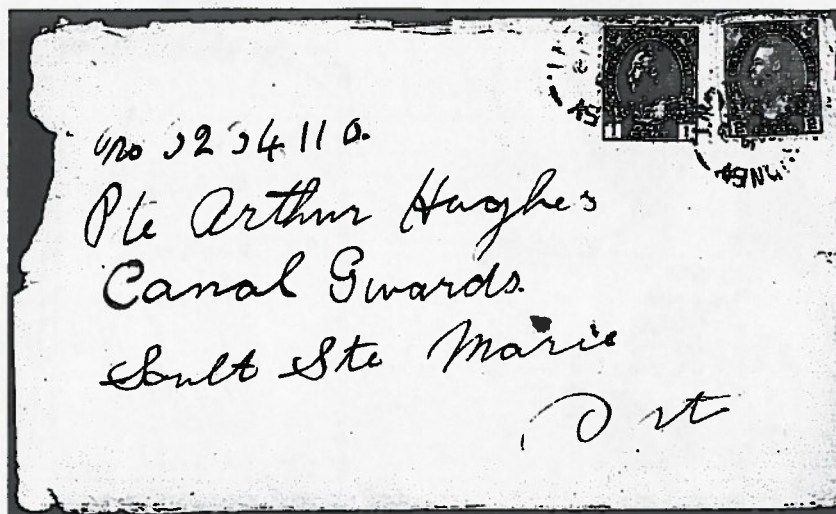 No 2234110.
Pte Arthur Hughes
Canal Guards.
Sault Ste Marie
Ont